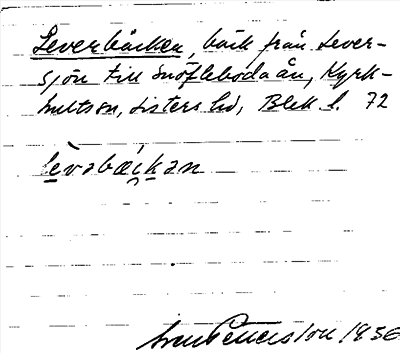 Leverbäcken, bäck från Lever-
sjön till Snöflebodaån, Kyrk-
hults sn, Listers hd, Blek. l. 72
lèvəbäckən
1936